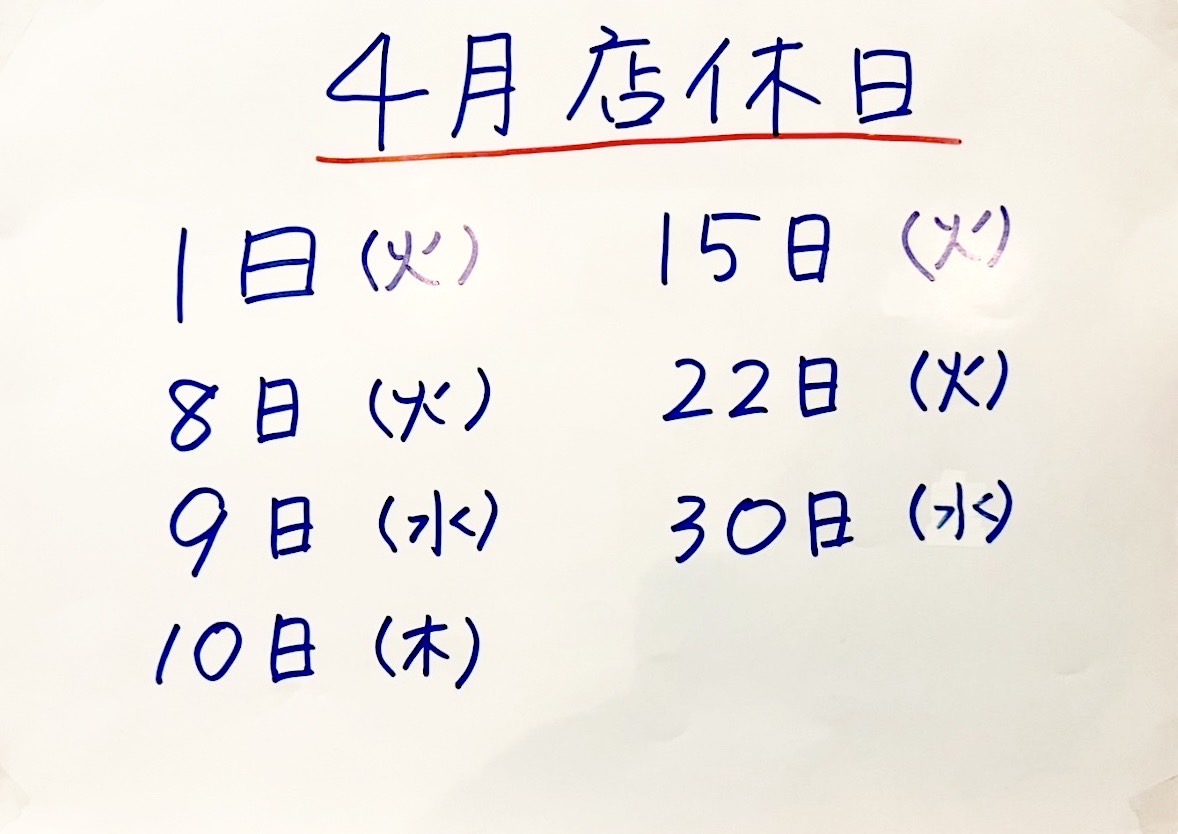 4月店休日
1日(火)
8日(火)
9日(水)
10日(木)
15日(火)
22日(火)
30日(水)